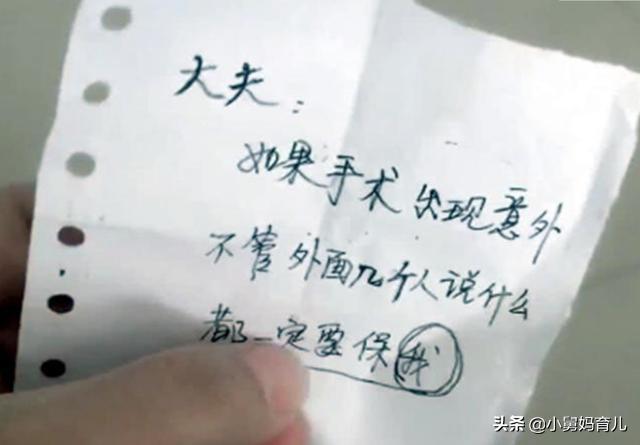 大夫：
如果手术出现意外
不管外面几个人说什么
都一定要保我
头条 @小舅妈育儿